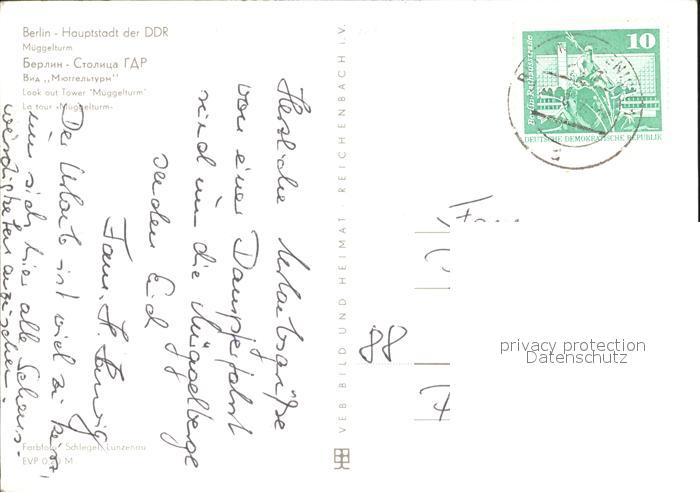 Berlin - Hauptstadt der DDR
Müggelturm
Берлин - Столица ГДР
Вид „Мюггельтурм"
Look out Tower "Müggelturm"
La tour „Müggelturm"
Herzliche Urlaubsgrüße
von einer Dampferfahrt
rund um die Müggelberge
senden Euch
Fam. H.
Der Urlaub ist viel zu kurz,
um sich hier alle Sehens-
würdigkeiten anzusehen.
Farbfoto: Schlegel, Lunzenau
EVP 0,20 M
VEB BILD UND HEIMAT · REICHENBACH I. V.
10
Berlin-Rathausstraße
DEUTSCHE DEMOKRATISCHE REPUBLIK
privacy protection
Datenschutz